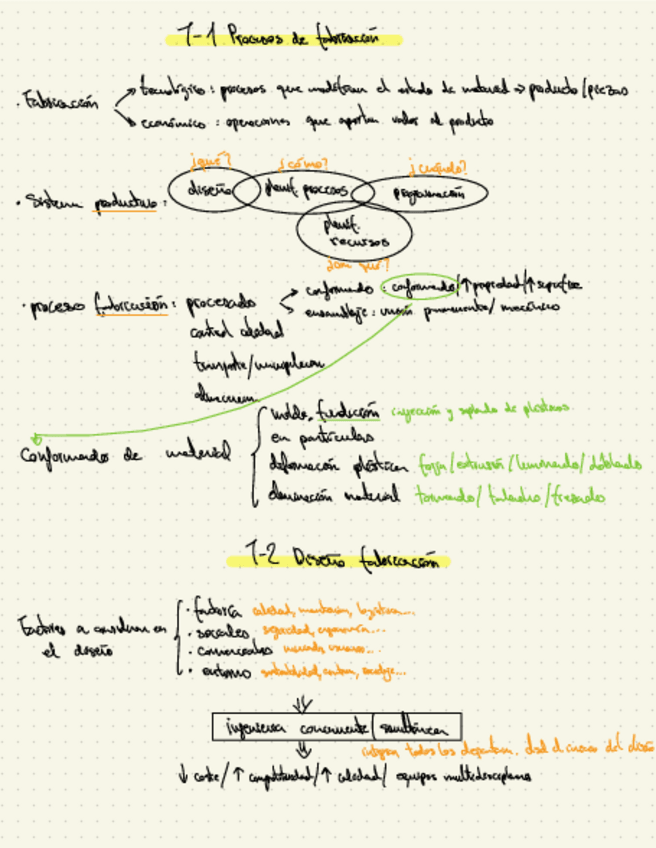 T-1 Procesos de fabricación
· Fabricación
tecnológico : procesos que modifican el estado de material → producto/piezas
económico : operaciones que aportan valor al producto
¿qué? ¿cómo? ¿cuándo?
· Sistema productivo : diseño planif. procesos programación
planif. recursos
¿con qué?
· proceso fabricación : procesado
conformado : conformado/↑propiedad/↑superficie
ensamblaje : unión permanente/mecánico
control calidad
transporte/manipulación
almacenam.
Conformados de material
molde, fundición inyección y soplado de plásticos.
en partículas
deformación plástica forja/extrusión/laminado/doblado
eliminación material torneado/taladro/fresado
T-2 Diseño fabricación
Factores a considerar en el diseño
· factoría calidad, logística...
· sociales seguridad, ergonomía...
· comerciales
· entorno
ingeniería concurrente/simultánea
todos los departam. del diseño
↓ coste/↑ competitividad/↑ calidad/ equipos multidisciplina